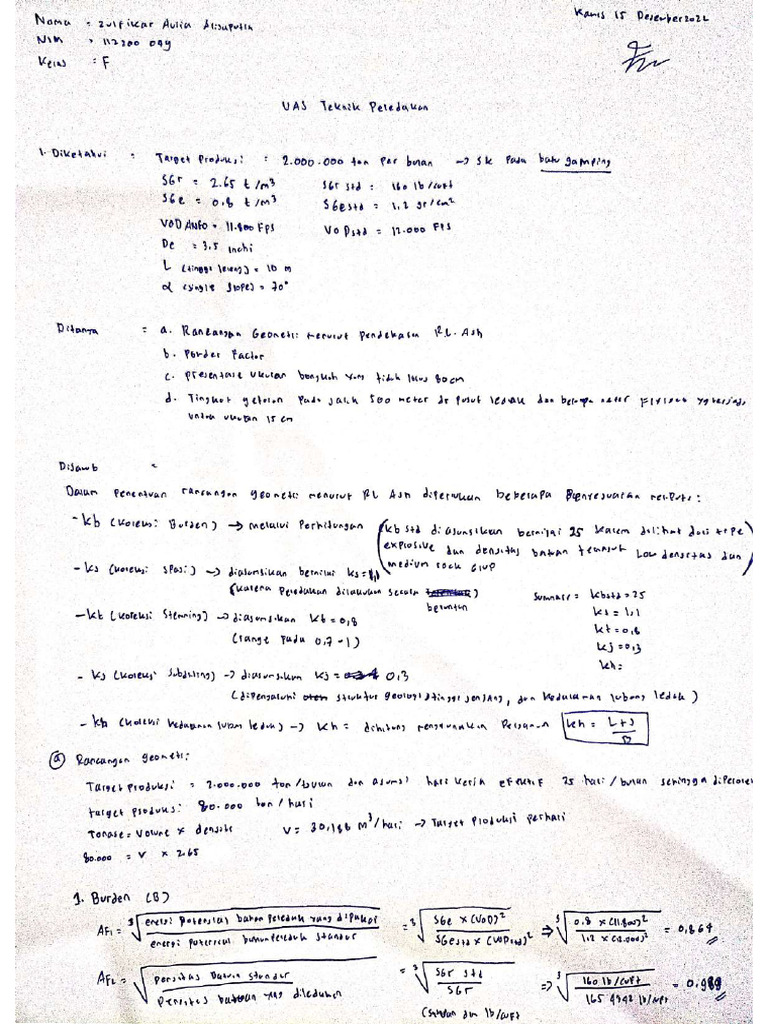 Nama : Zulfikar Aulia
Kamis 15 Desember 2022
NIM : 112200 099
Kelas : F
UAS Teknik Peledakan
1. Diketahui : Target Produksi : 2.000.000 ton per bulan → SK pada batu gamping
SGr = 2.65 t/m³ SGr std = 160 lb/cuft
SGe = 0,8 t/m³ SGe std = 1,2 gr/cm²
VOD ANFO = 11.800 FPS VOD std = 12.000 FPS
De = 3,5 inchi
L (tinggi lereng) = 10 m
α (single slope) = 70°
Ditanya = a. Rancangan Geometri menurut Pendekatan R.L. Ash
b. Powder Factor
c. Presentase ukuran bongkah yang tidak lolos 80 cm
d. Tingkat getaran pada jarak 500 meter dr pusat ledak dan berapa meter Flyrock yg terjadi
untuk ukuran 15 cm
Dijawab =
Dalam penentuan rancangan geometri menurut RL Ash diperlukan beberapa penyesuaian meliputi :
- Kb (koreksi Burden) → melalui Perhitungan (kb std diasumsikan bernilai 25 karena dilihat dari type
explosive dan densitas batuan termasuk Low densitas dan
medium rock group)
- Ks (koreksi spasi) → diasumsikan bernilai ks = 1,1
(karena peledakan dilakukan secara beruntun)
Summary = Kbstd = 25
ks = 1,1
- Kt (koreksi Stemming) → diasumsikan kt = 0,8
kt = 0,8
(range pada 0,7 - 1)
kj = 0,3
kh =
- Kj (koreksi Subdrilling) → diasumsikan kj = 0,3
(dipengaruhi struktur geologi, tinggi jenjang, dan kedalaman lubang ledak)
- Kh (koreksi kedalaman lubang ledak) → Kh = dihitung menggunakan Persamaan kh = L+J / B
(a) Rancangan geometri :
Target produksi = 2.000.000 ton/bulan dan asumsi hari kerja efektif 25 hari/bulan sehingga diperoleh
target produksi 80.000 ton/hari
Tonase = Volume x densitas V = 30,188 m³/hari → Target Produksi perhari
80.000 = V x 2.65
1. Burden (B)
AF1 = ³√(energi potensial bahan peledak yang dipakai / energi potensial bahan peledak standar) = ³√(SGe x (VOD)² / SGe std x (VOD std)²) ⇒ ³√(0.8 x (11.800)² / 1.2 x (12.000)²) = 0,864
AF2 = √(Densitas Batuan standar / Densitas batuan yang diledakan) = ³√(SGr std / SGr) ⇒ ³√(160 lb/cuft / 165,4342 lb/cuft) = 0,989
(satuan dlm lb/cuft